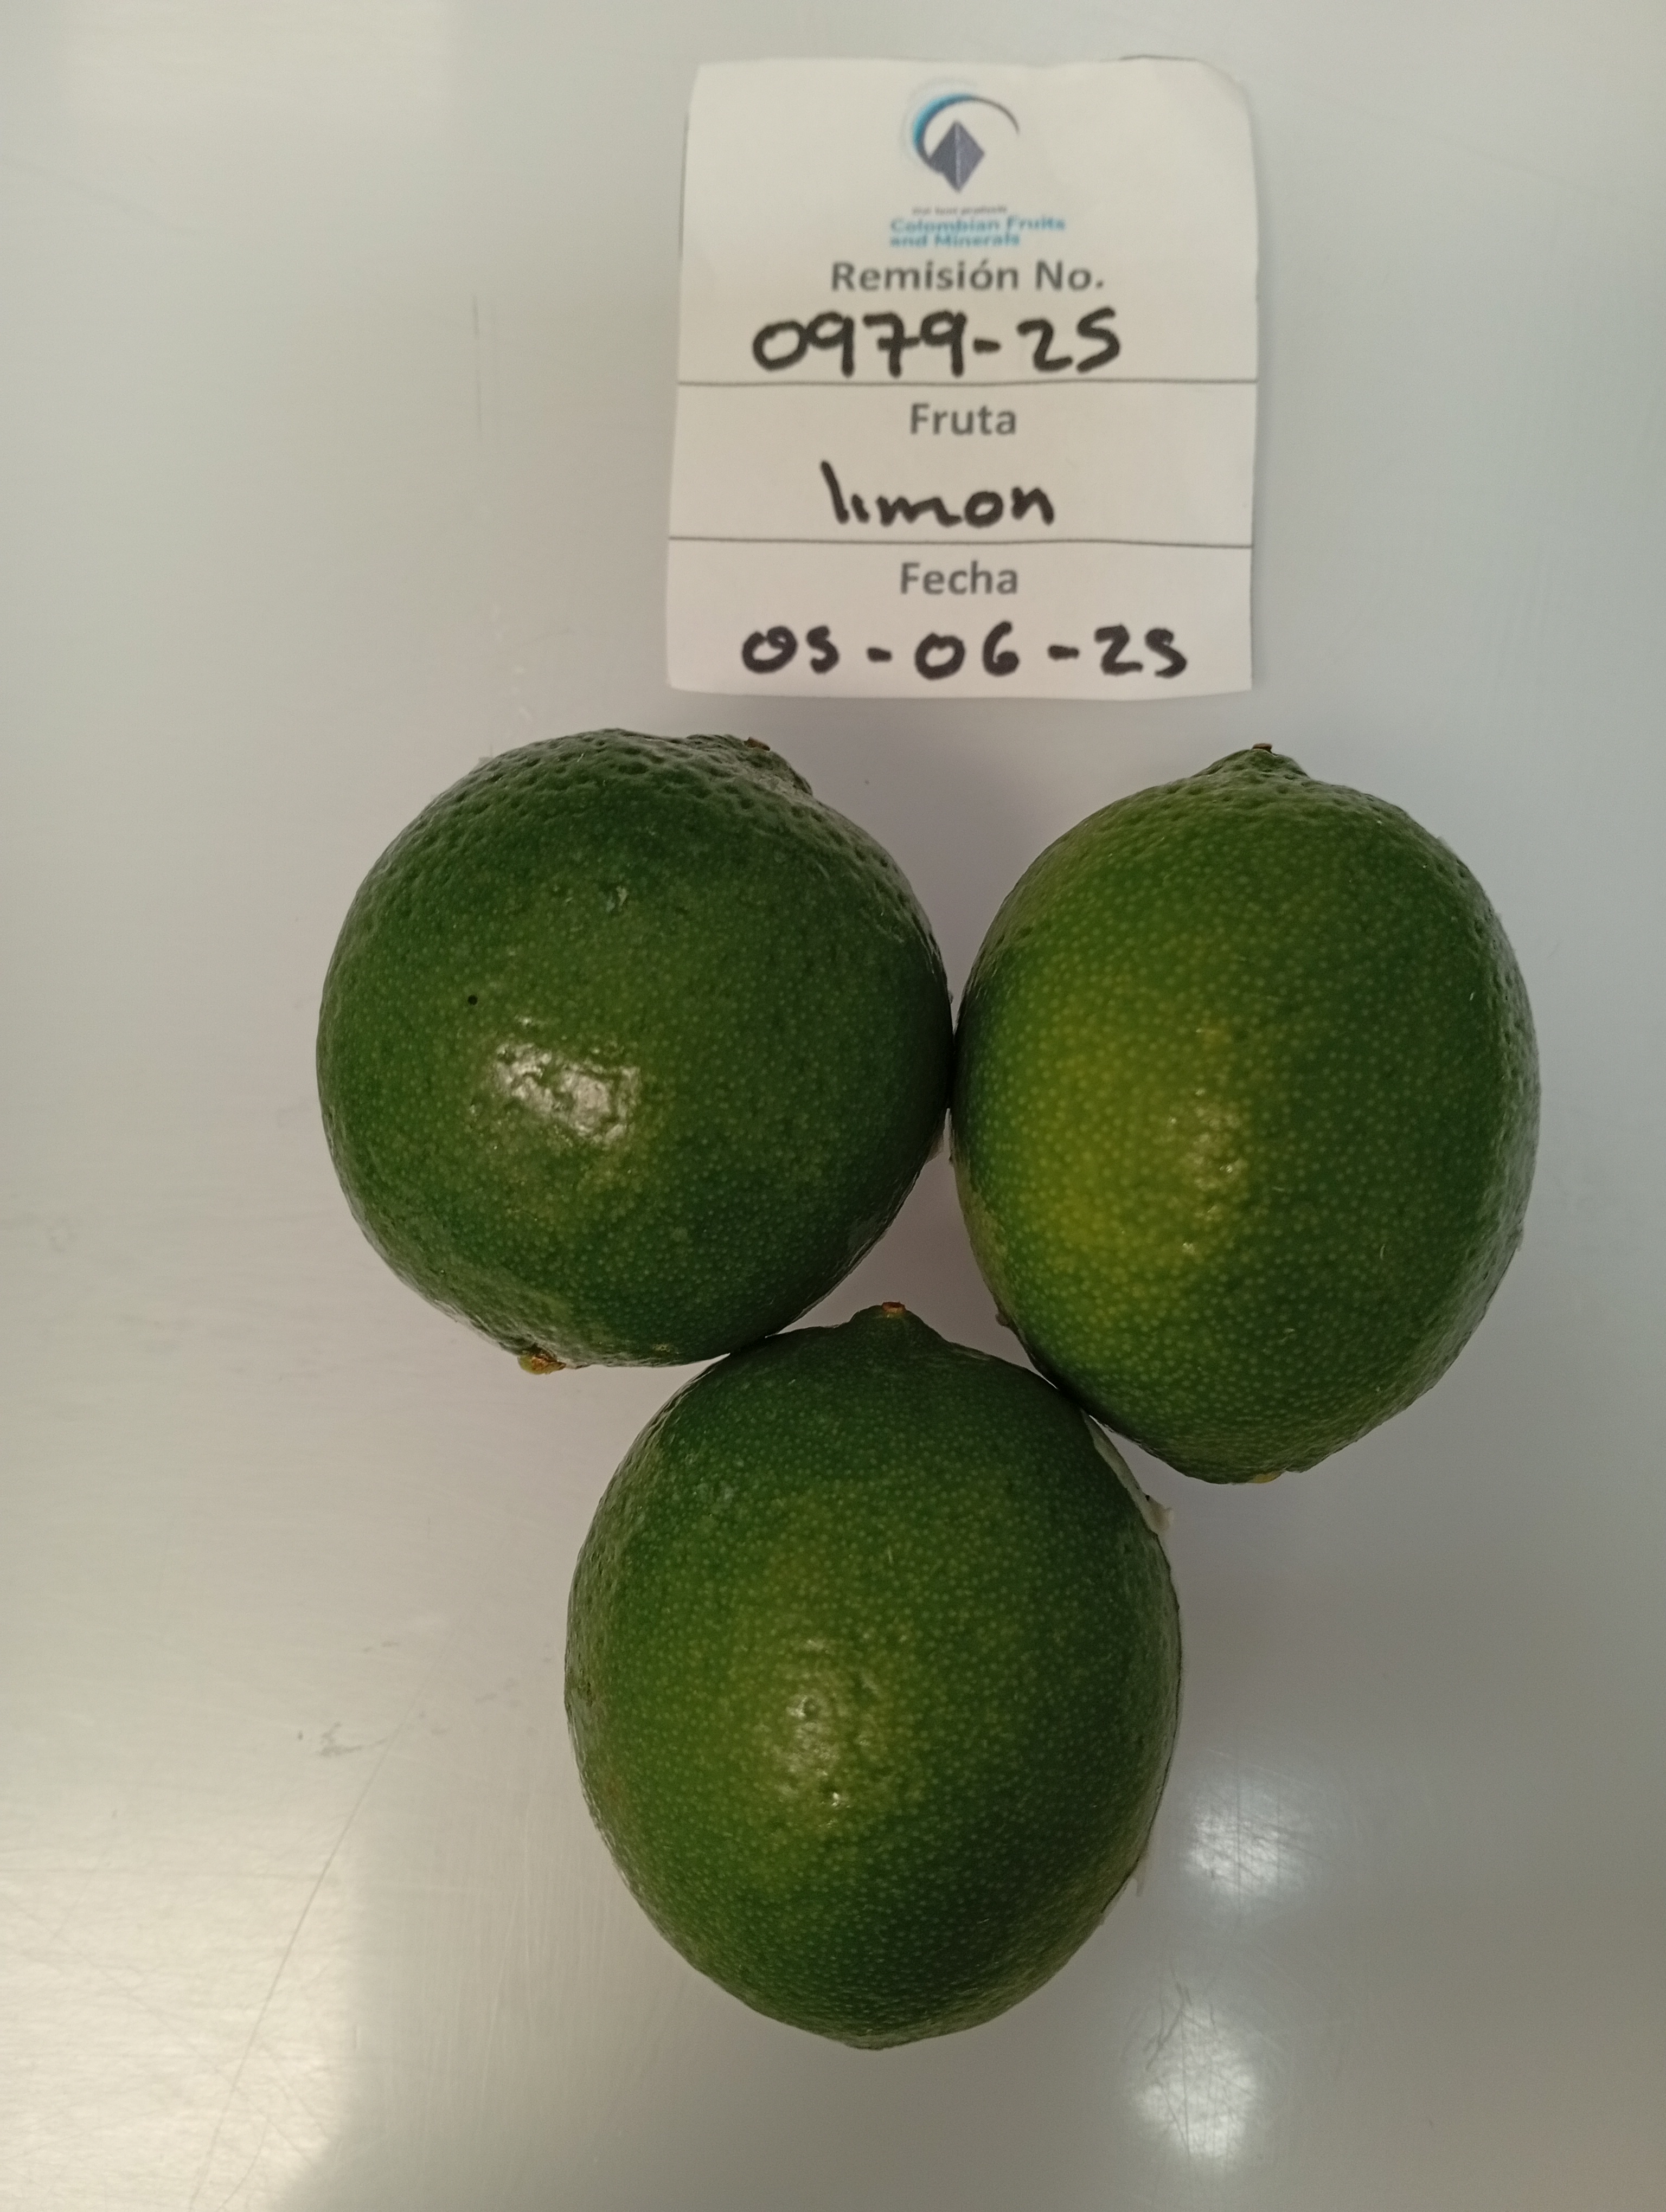 Colombian Fruits
and Minerals
Remisión No.
0979-25
Fruta
limon
Fecha
05-06-25